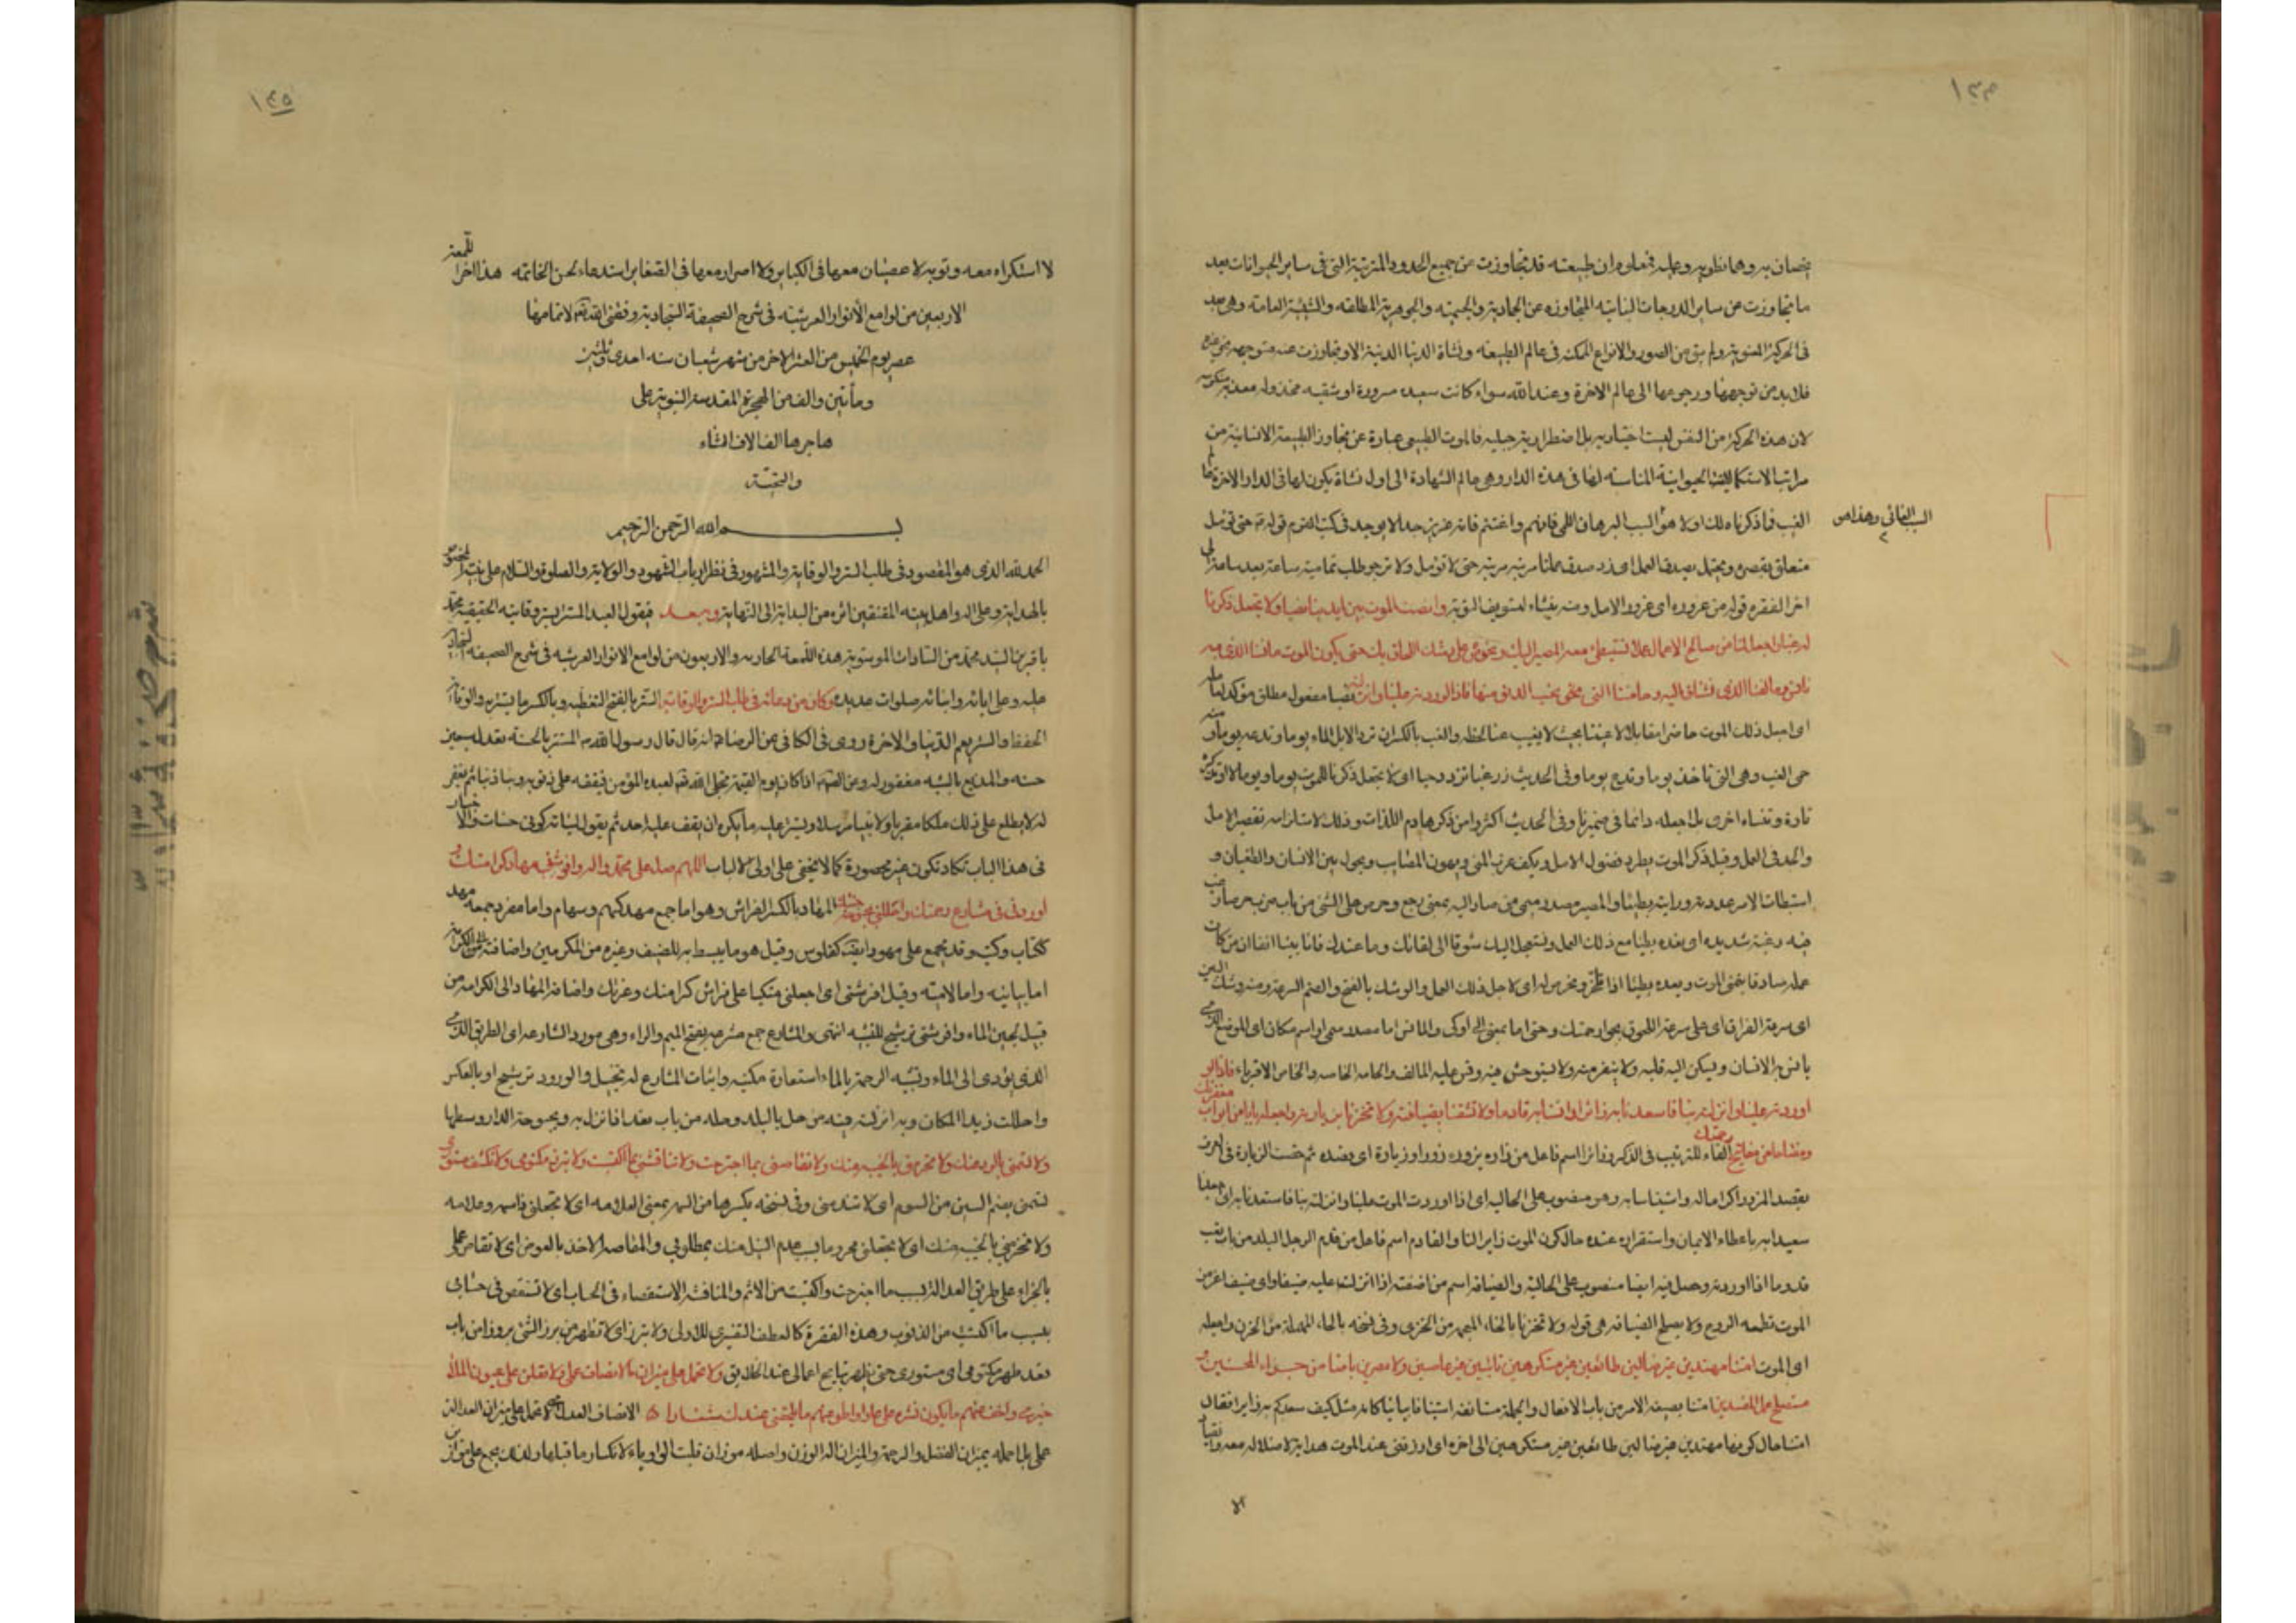 يخصان به وهما نظويه وعليه فمعلوم ان طبيعته قد تجاوزت عن جميع الحدود المترتبة التى فى ساير الحيوانات بعد
ما تجاوزت عن ساير الدرجات النباتيه المتجاوزه عن الجماديه والجسميه والجوهرية المطلقه والشيئية العامة وهى بعد
فى الحركة المعنوية ولم يبق من الصور والانواع الممكنه فى عالم الطبيعه ونشاة الدنيا الدنية الا وتجاوزت عنه متوجهه
فلا بد من توجهها ورجوعها الى عالم الاخرة وعند الله سواء كانت سعيده مسرورة او شقيه مخذوله معذبه منكوسه
لان هذه الحركة من النفس ليست اختياريه بل اضطرارية جبليه فالموت الطبيعى عبارة عن تجاوز الطبيعة الانسانية من
مراتب الاستكمالات الحيوانية المناسبه لها فى هذه الدار وهى عالم الشهادة الى اول نشاة يكون لها فى الدار الاخرة
السبب الغائى وهذا هو
الغيب فما ذكرناه لك اولا هو السبب البرهان اللمى فافهم واغتنم فانه عزيز جدا لا يوجد فى كتب القوم قوله حتى نؤمل
متعلق بقصر ويحتمل بصدق العمل اى زد صدق عملنا مرتبه مرتبه حتى لا نؤمل ولا نرجو طلب تمامية ساعة بعد ساعة الى
اخر الفقره قوله من غروره اى غرور الامل ومنه ينشاء لتسويف التوبة وانصب الموت بين ايدينا نصبا ولا تجعل ذكرنا
له غبا واجعل لنا من صالح الاعمال عملا نستبطئ معه المصير اليك ونحرص له على وشك اللحاق بك حتى يكون الموت مانسنا الذى
نانس به ومالفنا الذى نشتاق اليه وحامتنا التى نحب الدنو منها فاذا اوردته علينا وانزلته نصبا مفعول مطلق مؤكد لعامله
اى اجعل ذلك الموت حاضرا مقابلا لاعيننا بحيث لا يغيب عنا لحظه والغب بالكسر ان ترد الابل الماء يوما وتدعه يوما ومنه
حمى الغب وهى التى تاخذ يوما وتدع يوما وفى الحديث زر غبا تزدد حبا اى لا تجعل ذكرنا للموت يوما ويوما لا او نذكره
تارة وننساه اخرى بل اجعله دائما فى ضميرنا وفى الحديث اكثروا من ذكر هادم اللذات وذلك لاستلزامه تقصير الامل
والجد فى العمل وقيل ذكر الموت يطرد فضول الامل ويكف غرب المنى ويهون المصايب ويحول بين الانسان والطغيان و
استبطات الامر عددته ورايته بطيئا والمصير مصدر ميمى من صار اليه بمعنى رجع وحرص على الشئ من باب ضرب حرصا رغب
فيه رغبة شديده اى نعده بطيئا مع ذلك العمل ونستعجل اليك شوقا الى لقائك وما عندك فانا بينا انفا ان من كان
عمله صادقا يتمنى الموت ويعده بطيئا اذا تاخر ونحرص له اى لاجل ذلك العمل والوشك بالفتح والضم السرعة ومنه وشك البين
اى سرعة الفراق اى على سرعة اللحوق بجوار رحمتك وحتى اما بمعنى الى او كى والمانس اما مصدر ميمى او اسم مكان اى الموضع الذى
يانس به الانسان ويسكن اليه قلبه ولا ينفر منه ولا يستوحش فيه وقس عليه المالف والحامه الخاصه والخاص الاقرباء فاذا
اوردته علينا وانزلته بنا فاسعدنا به زائرا وانسنا به قادما ولا تشقنا بضيافته ولا تخزنا بزيارته واجعله بابا من ابواب مغفرتك
ومفتاحا من مفاتيح رحمتك الفاء للترتيب فى الذكر وزائرا اسم فاعل من زاره يزوره زورا وزيارة اى قصده ثم خصت الزيارة فى العرف
بقصد المزور اكراما له واستيناسا به وهو منصوب على الحاليه اى اذا اوردت الموت علينا وانزلته بنا فاسعدنا به اى اجعلنا
سعيدا به باعطاء الايمان واستقراره عنده حالكون الموت زايرا لنا والقادم اسم فاعل من قدم الرجل البلد من باب تعب
قدوما اذا اورده وحصل فيه ايضا منصوب على الحالية والضيافه اسم من اضفته اذا انزلت عليه ضيفا واى ضيف اعز من
الموت تطعمه الروح ولا يصلح الضيافه هى قوله ولا تخزنا بالخاء المعجمه من الخزى وفى نسخه بالحاء المهملة من الحزن واجعله
اى الموت امتنا مهتدين غير ضالين طائعين غير مستكرهين تائبين غير عاصين ولا مصرين يا ضامن جزاء المحسنين و
مستصلح عمل المفسدين امتنا بصيغه الامر من باب الافعال والجمله مستانفه استينافا بيانيا كانه سئل كيف سعدكم به زايرا فقال
امتنا حال كوننا مهتدين غير ضالين طائعين غير مستكرهين الى اخره اى ارزقنى عند الموت هداية لا ضلاله معه
لا
١٤٥
لا استكراه معه وتوبه لا عصيان معها فى الكباير ولا اصرار معها فى الصغاير استدعاء لحسن الخاتمه هذا اخر اللمعة
الاربعين من لوامع الأنوار العرشيه فى شرح الصحيفة السجادية وفقنى الله تعالى لاتمامها
عصر يوم الخميس من العشر الاخر من شهر شعبان سنه احدى وثلثين
ومأتين والف من الهجرة المقدسة النبوية على
هاجرها الف الاف الثناء
والتحية
بسم الله الرحمن الرحيم
الحمد لله الذى هو المقصود فى طلب الستر والوقاية والمشهود فى نظر ارباب الشهود والولاية والصلوة والسلام على نبيه المخصوص
بالهداية وعلى اله واهل بيته المقتفين اثره من البداية الى النهاية وبعد فيقول العبد المستتر بستر وقايته الحقيقيه محمد
باقر بن السيد محمد من السادات الموسويه هذه اللمعة الحاديه والاربعون من لوامع الانوار العرشيه فى شرح الصحيفه السجاديه
عليه وعلى ابائه وابنائه صلوات عديده وكان من دعائه فى طلب الستر والوقاية الستر بالفتح التغطيه وبالكسر ما يستر به والوقاية
الحفظ والستر يعم الدنيا والاخرة روى فى الكافى عن الرضا انه قال قال رسول الله المستتر بالحسنة تعدل سبعين
حسنه والمذيع بالسيئه مغفور له وعن الصادق اذا كان يوم القيمة تجلى الله لعبده المؤمن فيقفه على ذنوبه ذنبا ذنبا ثم يغفر
له لا يطلع على ذلك ملكا مقربا ولا نبيا مرسلا ويستر عليه ما يكره ان يقف عليه احد ثم يقول لسيئاته كونى حسنات والاخبار
فى هذا الباب تكاد تكون غير محصورة كما لا يخفى على اولى الالباب اللهم صل على محمد واله وافرشنى مهاد كرامتك و
اوردنى فى مشارع رحمتك واحللنى بحبوحة جنتك المهاد بالكسر الفراش وهو اما جمع مهد كسهم وسهام واما مفرد جمعه مهد
ككتاب وكتب وقد يجمع على مهود ايضا كفلوس وقيل هو ما يبسط به للضيف وغيره من المكرمين واضافته الى الكرامة
اما بيانيه واما لاميه وقيل افرشنى اى اجعلنى متكيا على فراش كرامتك وعزتك واضافه المهاد الى الكرامه من
قبيل لجين الماء وافرشنى ترشيح للتشبيه انتهى والمشارع جمع مشرعه بفتح الميم والراء وهى مورد الشاربه اى الطريق الذى
الذى يؤدى الى الماء وتشبيه الرحمة بالماء استعارة مكنيه واثبات المشارع له تخييل والورود ترشيح او بالعكس
واحللت زيدا المكان وبه انزلته فيه من حل بالبلد وحله من باب قعد اذا نزل به وبحبوحة الدار وسطها
ولا تسمنى بالرد عنك ولا تحرمنى بالخيبه منك ولا تقاصنى بما اجترحت ولا تناقشنى بما اكتسبت ولا تبرز مكتومى ولا تكشف مستورى
تسمنى بضم السين من السوم اى لا تذلنى وفى نسخه بكسرها من الوسم بمعنى العلامه اى لا تجعلنى فاسمه وعلامه
ولا تحرمنى بالخيبه منك اى لا تجعلنى محروما بسبب عدم النيل منك بمطلوبى والمقاصه الاخذ بالعوض اى لا تقاص عملى
بالجزاء على طريق العدالة بسبب ما اجترحت واكتسبت من الاثم والمناقشه الاستقصاء فى الحساب اى لا تستقص فى حسابى
بسبب ما اكتسبت من الذنوب وهذه الفقرة كالعطف التفسيرى للاولى ولا تبرز اى لا تظهر من برز الشئ بروزا من باب
قعد ظهر مكتومى اى مستورى حتى تظهر قبايح اعمالى عند الخلايق ولا تحمل على ميزان الانصاف عملى ولا تعلن على عيون الملا
خبرى واخف عنهم ما يكون نشره على عارا واطو عنهم ما يلحقنى عندك شنارا الانصاف العدل اى لا تحمل على ميزان العدالة
عملى بل احمله بميزان الفضل والرحمة والميزان اله الوزن واصله موزان قلبت الواو ياء لانكسار ما قبلها ولذلك يجمع على موازين